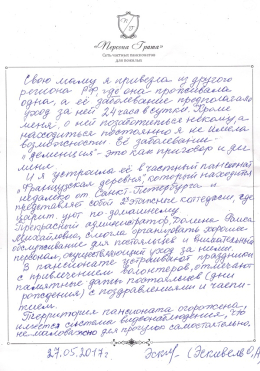 «Персона Грата»
Сеть частных пансионатов
для пожилых
Свою маму я привезла из другого
региона РФ, где она проживала
одна, а её заболевание предполагало
уход за ней 24 часа в сутки. Кроме
меня, о ней позаботиться некому, а
находиться постоянно я не имела
возможности. Её заболевание -
"деменция" - это как приговор и для
меня.
И я устроила её в частный пансионат
"Французская деревня", который находится
недалеко от Санкт-Петербурга и
представляет собой 2-этажные коттеджи, где
царит уют по-домашнему.
Прекрасной администратор,
Михайловне, смогла организовать хорошее
обслуживание для постояльцев и внимательный
персонал, осуществляющий уход за ними.
В пансионате устраивают праздники
с привлечением волонтеров, отмечают
памятные даты постояльцев (дни
рождения) с поздравлениями и чаепи-
тием.
Территория пансионата огорожена,
имеется система видеонаблюдения, что
немаловажно для прогулок самостоятельно.
27.05.2017г.